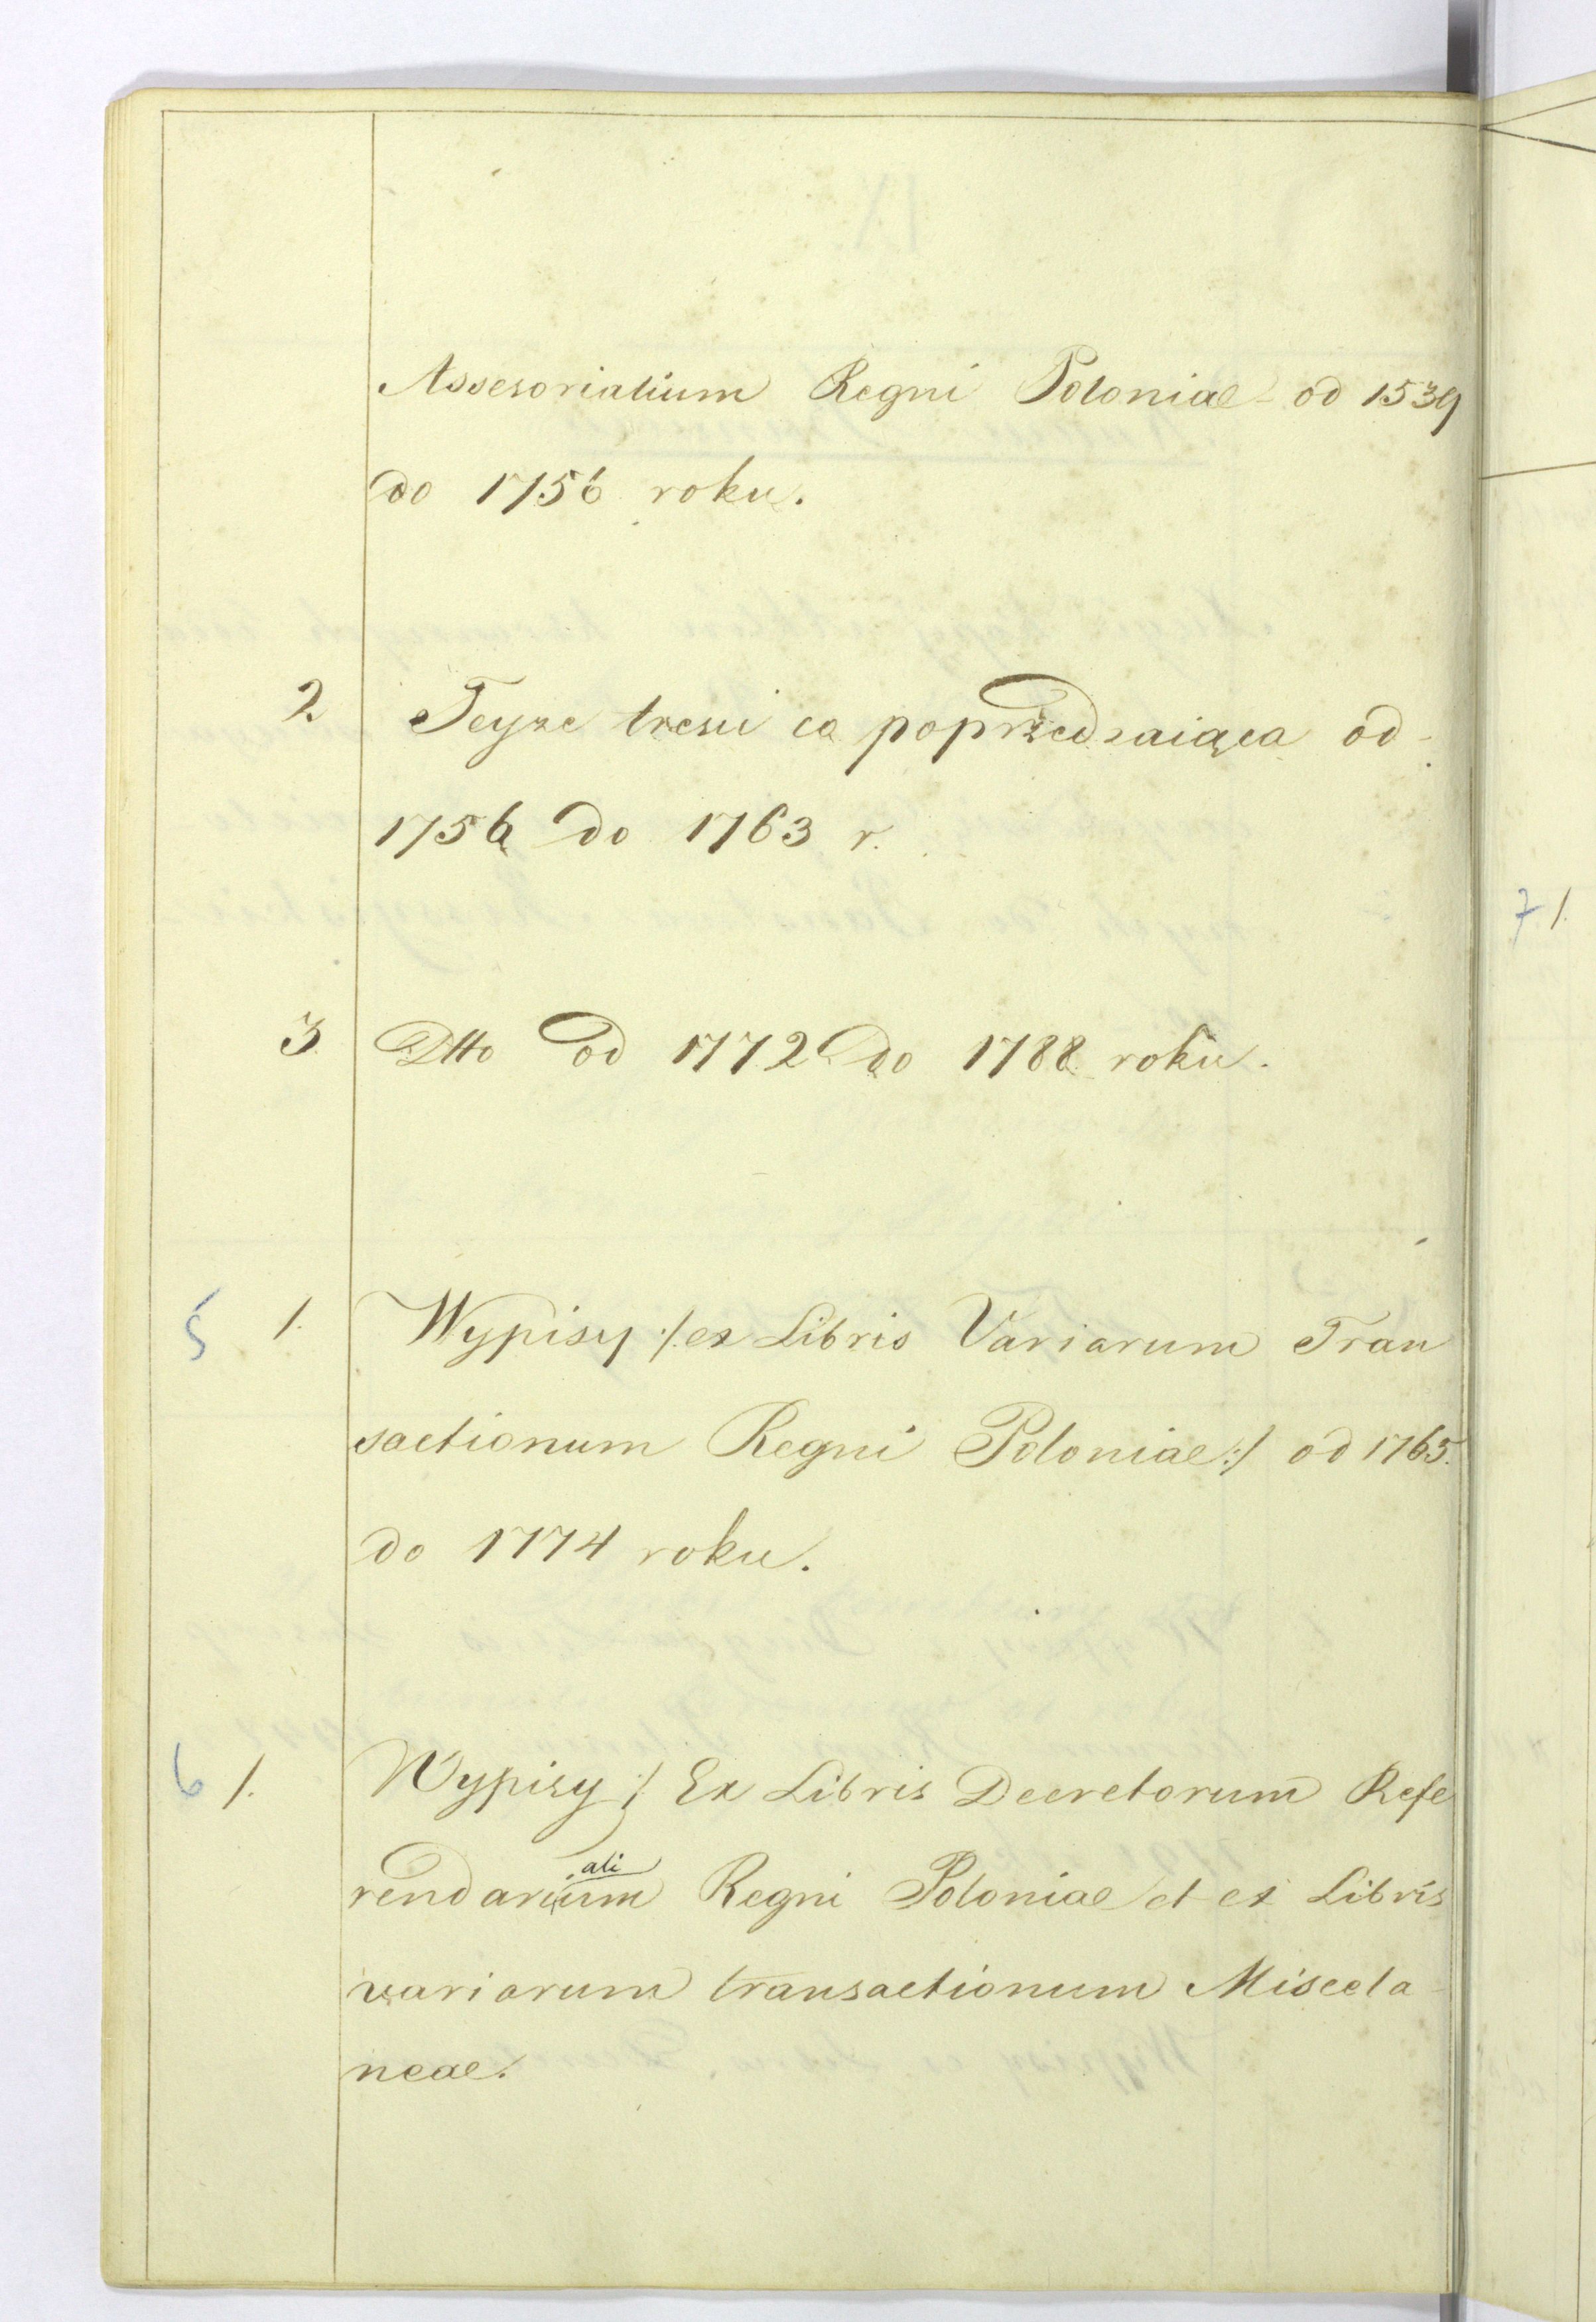 Assesorialium Regni Poloniae od 1539
do 1756 roku.
2. Teyże treści co poprzedzaiąca od
1756 do 1763 r.
3. Dtto od 1772 do 1788 roku.
5 1. Wypisy :/ ex Libris Variarum Tran
sactionum Regni Poloniae :/ od 1765.
do 1774 roku.
6 1. Wypisy :/ Ex Libris Decretorum Refe
rendarium Regni Poloniae et ex Libris
ali
variarum transactionum Miscela-
neae.
7 1.